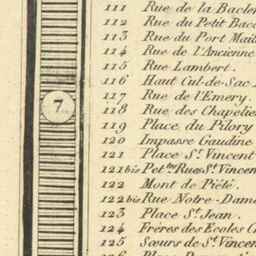 111 Rue de la
112 Rue du Petit
113 Rue du Port
114 Rue de l'Ancienne
115 Rue Lambert.
116 Haut Cul-de-Sac
7.
117 Rue de l'Emery.
118 Rue des
119 Place du Pilory
120 Impasse Gaudine
121 Place St. Vincent
121 bis Pet.te Rue St. Vincent
122 Mont de Piété.
122 bis Rue Notre-Dame
123 Place St. Jean.
124 Frères des Ecoles
125 Sœurs de St. Vincent
126